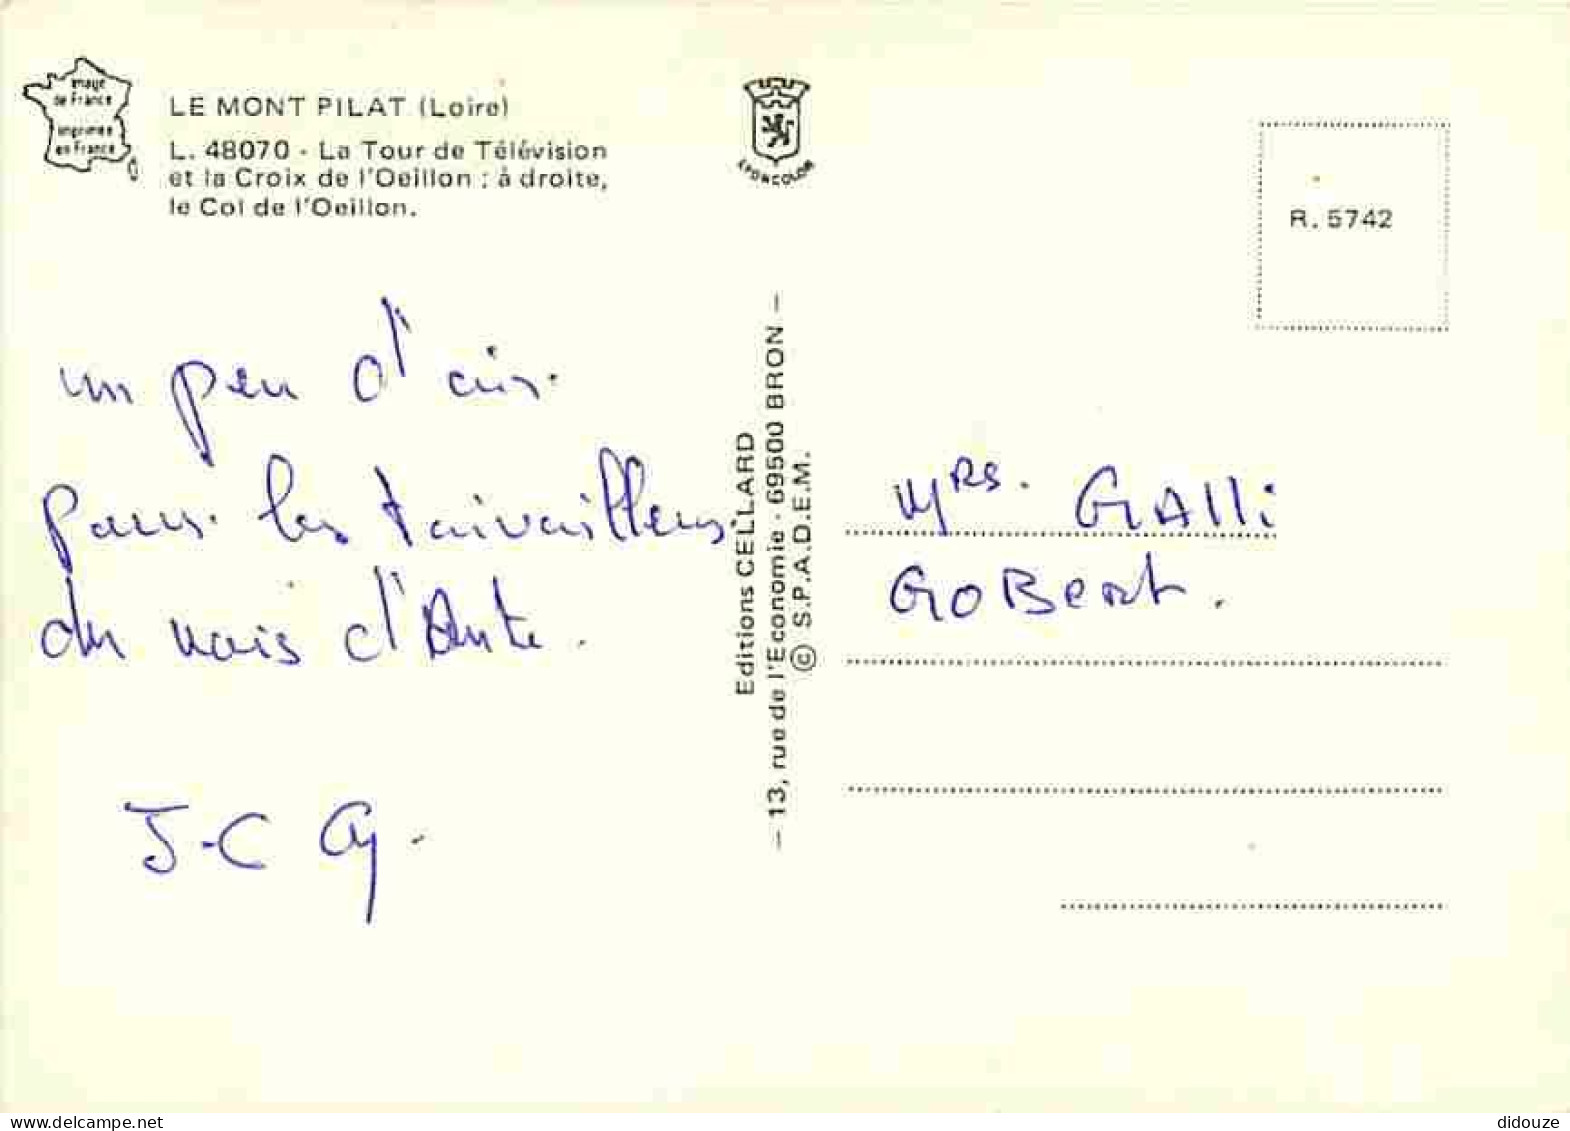 Image
de France
imprimée
en France
LE MONT PILAT (Loire)
L. 48070 - La Tour de Télévision
et la Croix de l'Oeillon : à droite,
le Col de l'Oeillon.
LYONCOLOR
R. 5742
un peu d'air.
pour les travailleurs
du mois d'Août.
J-C
Editions CELLARD
— 13, rue de l'Economie - 69500 BRON —
© S.P.A.D.E.M.
Mrs. GAlli
GOBert.
didouze